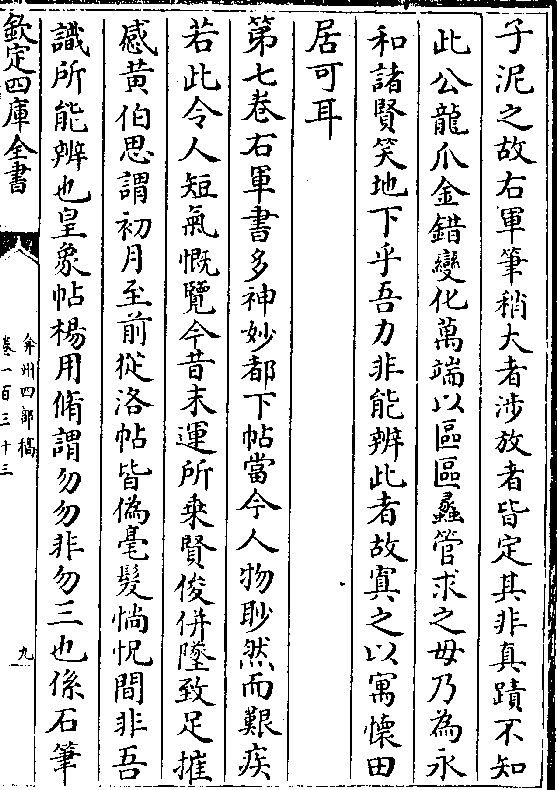 子泥之故右軍筆稍大者涉放者皆定其非真蹟不知
此公龍爪金錯變化萬端以區區蠡管求之毋乃為永
和諸賢笑地下乎吾力非能辨此者故寘之以寓懷田
居可耳
第七卷右軍書多神妙都下帖當今人物眇然而艱疾
若此令人短氣慨覽今昔末運所乗賢俊併墜致足摧
感黄伯思謂初月至前從洛帖皆偽毫髮惝怳間非吾
識所能辨也皇象帖楊用脩謂勿勿非勿三也係石筆
欽定四庫全書
弇州四部稿
卷一百三十三
九